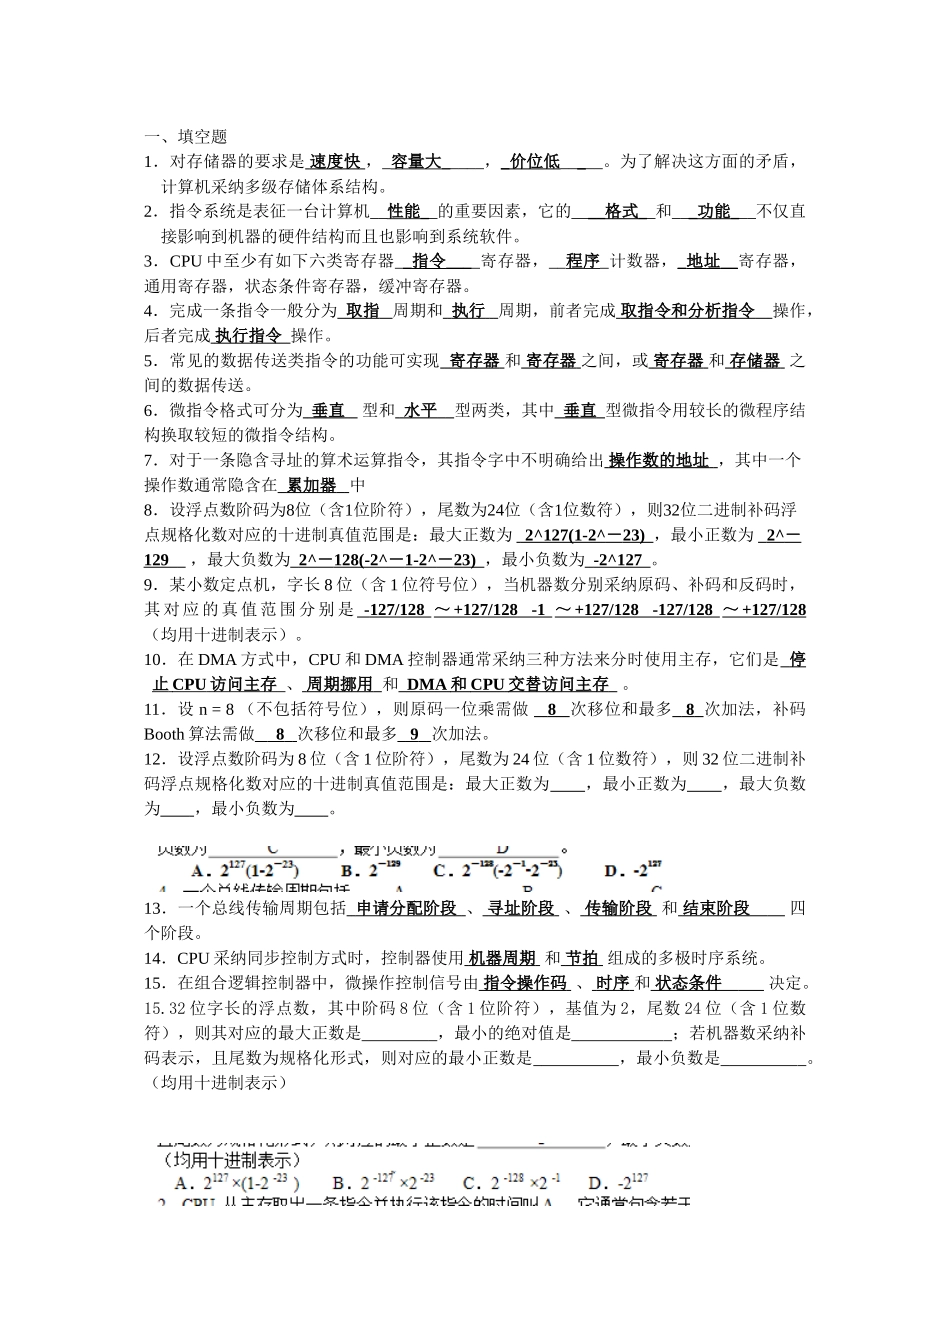 一、填空题
1．对存储器的要求是 速度快 ， 容量大 ， 价位低 。为了解决这方面的矛盾，
计算机采纳多级存储体系结构。
2．指令系统是表征一台计算机 性能 的重要因素，它的 格式 和 功能 不仅直
接影响到机器的硬件结构而且也影响到系统软件。
3．CPU 中至少有如下六类寄存器 指令 寄存器， 程序 计数器， 地址 寄存器，
通用寄存器，状态条件寄存器，缓冲寄存器。
4．完成一条指令一般分为 取指 周期和 执行 周期，前者完成 取指令和分析指令 操作，
后者完成 执行指令 操作。
5．常见的数据传送类指令的功能可实现 寄存器 和 寄存器 之间，或 寄存器 和 存储器 之
间的数据传送。
6．微指令格式可分为 垂直 型和 水平 型两类，其中 垂直 型微指令用较长的微程序结
构换取较短的微指令结构。
7．对于一条隐含寻址的算术运算指令，其指令字中不明确给出 操作数的地址 ，其中一个
操作数通常隐含在 累加器 中
8．设浮点数阶码为8位（含1位阶符），尾数为24位（含1位数符），则32位二进制补码浮
点规格化数对应的十进制真值范围是：最大正数为 2^127(1-2^－23) ，最小正数为 2^－
129 ，最大负数为 2^－128(-2^－1-2^－23) ，最小负数为 -2^127 。
9．某小数定点机，字长 8 位（含 1 位符号位），当机器数分别采纳原码、补码和反码时，
其对应的真值范围分别是 -127/128 ～ +127/128 -1 ～ +127/128 -127/128 ～ +127/128
（均用十进制表示）。
10．在 DMA 方式中，CPU 和 DMA 控制器通常采纳三种方法来分时使用主存，它们是 停
止 CPU 访问主存 、 周期挪用 和 DMA 和 CPU 交替访问主存 。
11．设 n = 8 （不包括符号位），则原码一位乘需做 8 次移位和最多 8 次加法，补码
Booth 算法需做 8 次移位和最多 9 次加法。
12．设浮点数阶码为 8 位（含 1 位阶符），尾数为 24 位（含 1 位数符），则 32 位二进制补
码浮点规格化数对应的十进制真值范围是：最大正数为____，最小正数为____，最大负数
为____，最小负数为____。
负数为 C ，最小负数为 D 。
A．2^127(1-2^－23) B．2^－129 C．2^－128(-2^－1-2^－23) D．-2^127
4．一个总线传输周期包括 A B C
13．一个总线传输周期包括 申请分配阶段 、 寻址阶段 、 传输阶段 和 结束阶段 四
个阶段。
14．CPU 采纳同步控制方式时，控制器使用 机器周期 和 节拍 组成的多极时序系统。
15．在组合逻辑控制器中，微操作控制信号由 指令操作码 、 时序 和 状态条件 决定。
15.32 位字长的浮点数，其中阶码 8 位（含 1 位阶符），基值为 2，尾数 24 位（含 1 位数
符），则其对应的最大正数是_________，最小的绝对值是____________；若机器数采纳补
码表示，且尾数为规格化形式，则对应的最小正数是__________，最小负数是__________。
（均用十进制表示）
（均用十进制表示）
A．2^127 ×(1-2^-23 ) B．2^-127 ×2^-23 C．2^-128 ×2^-1 D．-2^127
2．CPU 从主存取出一条指令并执行该指令的时间叫 A ，它通常包含若干